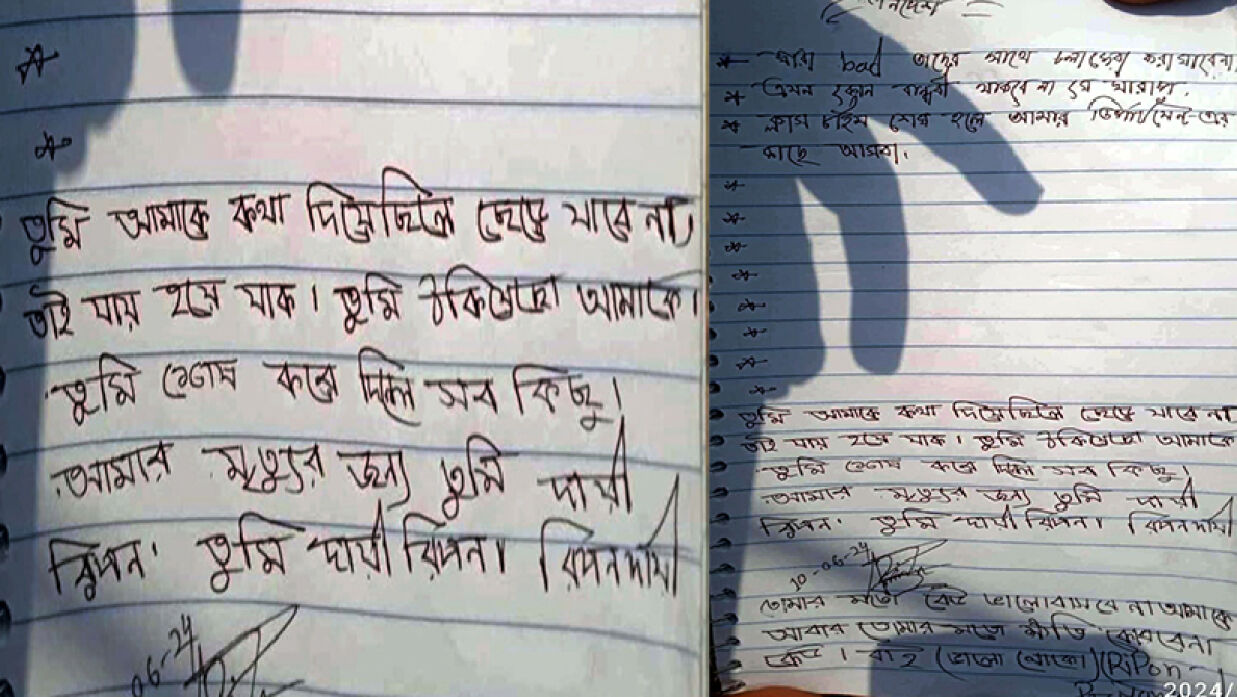 তুমি আমাকে কথা দিয়েছিলে ছেড়ে যাবে না,
তাই যায় হয়ে যাক। তুমি ঠকিয়েছো আমাকে।
তুমি শেষ করে দিলে সব কিছু।
আমার মৃত্যুর জন্য তুমি দায়ী
রিপন। তুমি দায়ী রিপন। রিপন দায়ী
06-24
যারা bad তাদের সাথে চলাফেরা করা যাবেনা
এমন কোন বান্ধবী থাকবে না যে খারাপ।
ক্লাস টাইম শেষ হলে আমার ডিপার্টমেন্ট এর
কাছে আসবা।
তুমি আমাকে কথা দিয়েছিলে ছেড়ে যাবে না
তাই যায় হয়ে যাক। তুমি ঠকিয়েছো আমাকে
তুমি শেষ করে দিলে সব কিছু।
আমার মৃত্যুর জন্য তুমি দায়ী
রিপন। তুমি দায়ী রিপন। রিপন দায়ী
10-06-24
তোমার মতো কেউ ভালোবাসবে না আমাকে
আবার তোমার মতো ক্ষতি কোরবেনা
কেউ। বাই (ভালো থেকো) (RiPon
2024/